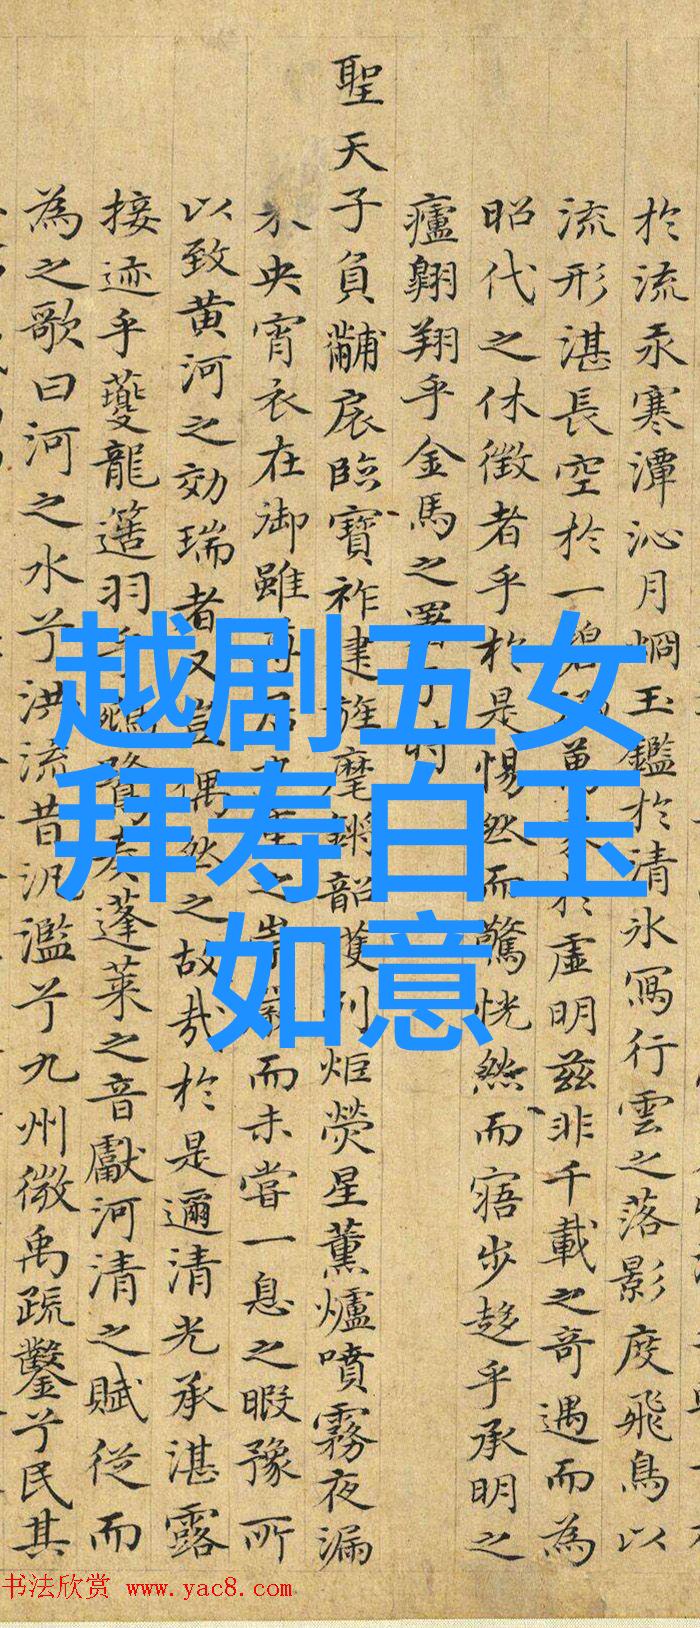 於流汞寒潭沁月烱玉鑑於清氷寫行雲之落影度飛鳥以
流形湛長空於一碧 萬 於虛明茲非千載之竒遇而為
昭代之休徵者乎於是惕然而驚恍然而寤步趍乎承明之
廬翺翔乎金馬之署于時
聖天子負黼扆臨寶祚建旌麾鏘韶頀列炬熒星薰爐噴霧夜漏
未央宵衣在御雖 居 之崇 而未嘗一息之暇豫所
以致黄河之効瑞者又豈偶然之故哉於是邇清光承湛露
接迹乎夔龍簉羽乎鵷鷺奏蓬萊之音獻河清之賦從而
為之歌曰河之水兮洪流昔汎濫兮九州微禹疏鑿兮民其
越剧五女
拜寿白玉
如意
书法欣赏 www.yac8.com